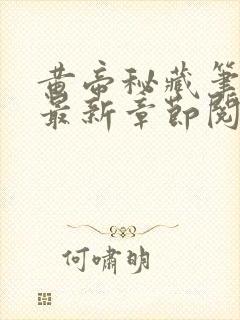 黄帝秘藏笔
最新章節閱
何嘯明